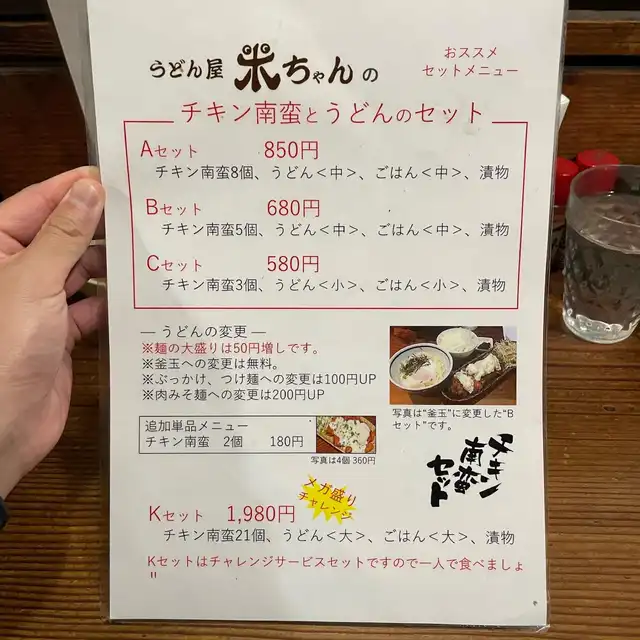 おススメ
セットメニュー
うどん屋 米ちゃんの
チキン南蛮とうどんのセット
Aセット 850円
チキン南蛮8個、うどん<中>、ごはん<中>、漬物
Bセット 680円
チキン南蛮5個、うどん<中>、ごはん<中>、漬物
Cセット 580円
チキン南蛮3個、うどん<小>、ごはん<小>、漬物
― うどんの変更 ―
※麺の大盛りは50円増しです。
※釜玉への変更は無料。
※ぶっかけ、つけ麺への変更は100円UP
※肉みそ麺への変更は200円UP
写真は"釜玉"に変更した"B
セット"です。
追加単品メニュー
チキン南蛮 2個 180円
写真は4個 360円
チキン
南蛮
セット
メガ盛り
チャレンジ
Kセット 1,980円
チキン南蛮21個、うどん<大>、ごはん<大>、漬物
Kセットはチャレンジサービスセットですので一人で食べましょ
!!